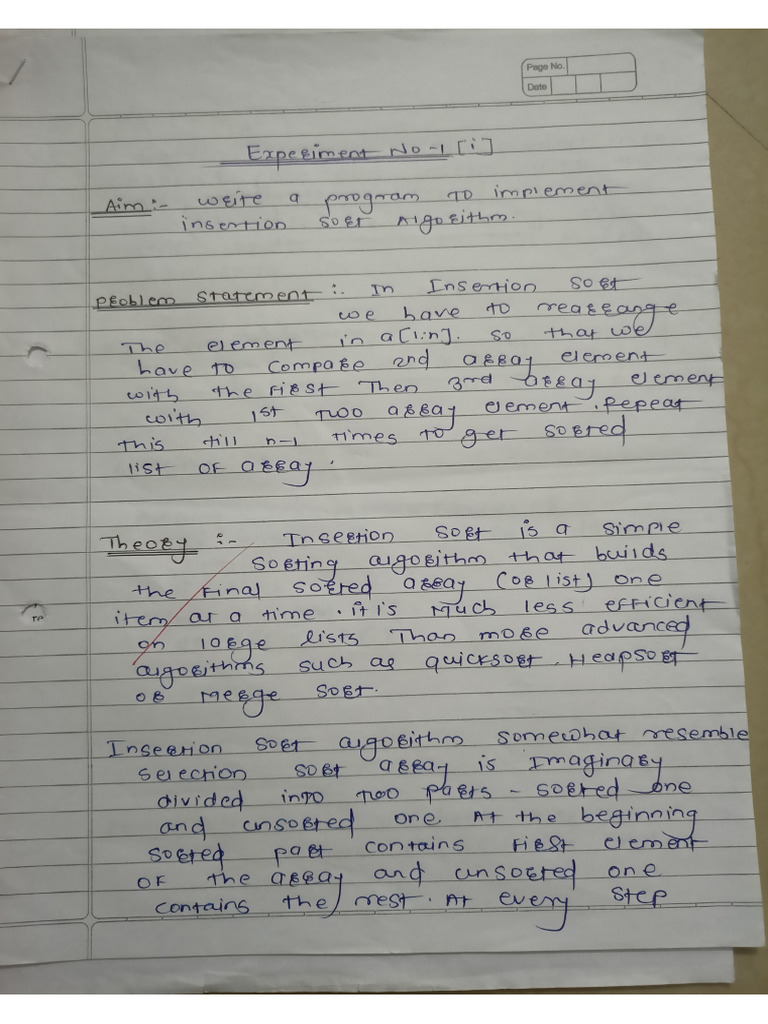 Page No.
Date
Experiment No-1 [i]
Aim:- write a program to implement
insertion sort Algorithm.
Problem Statement :- In Insertion sort
we have to rearrange
The element in a[1:n]. so that we
have to compare 2nd array element
with the First Then 3rd array element
with 1st Two array element. Repeat
this till n-1 times to get sorted
list OF array.
Theory :- Insertion sort is a simple
sorting algorithm that builds
the Final sorted array (or list) one
item at a time. it is Much less efficient
on large lists Than more advanced
algorithms such as quicksort. Heapsort
or Merge sort.
Insertion sort algorithm somewhat resemble
selection sort array is Imaginary
divided into two parts - sorted one
and unsorted one. At the beginning
sorted part contains First element
OF the array and unsorted one
contains the rest. At every step
TP